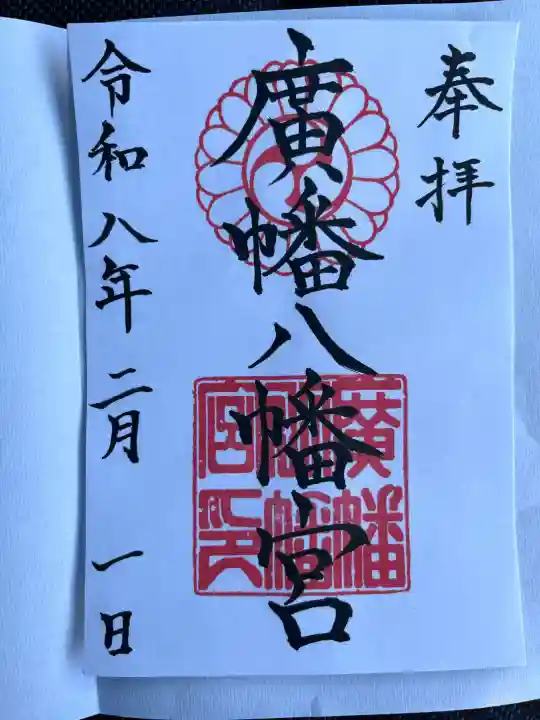 奉拝
廣幡八幡宮
廣幡
八幡
宮印
令和八年二月一日